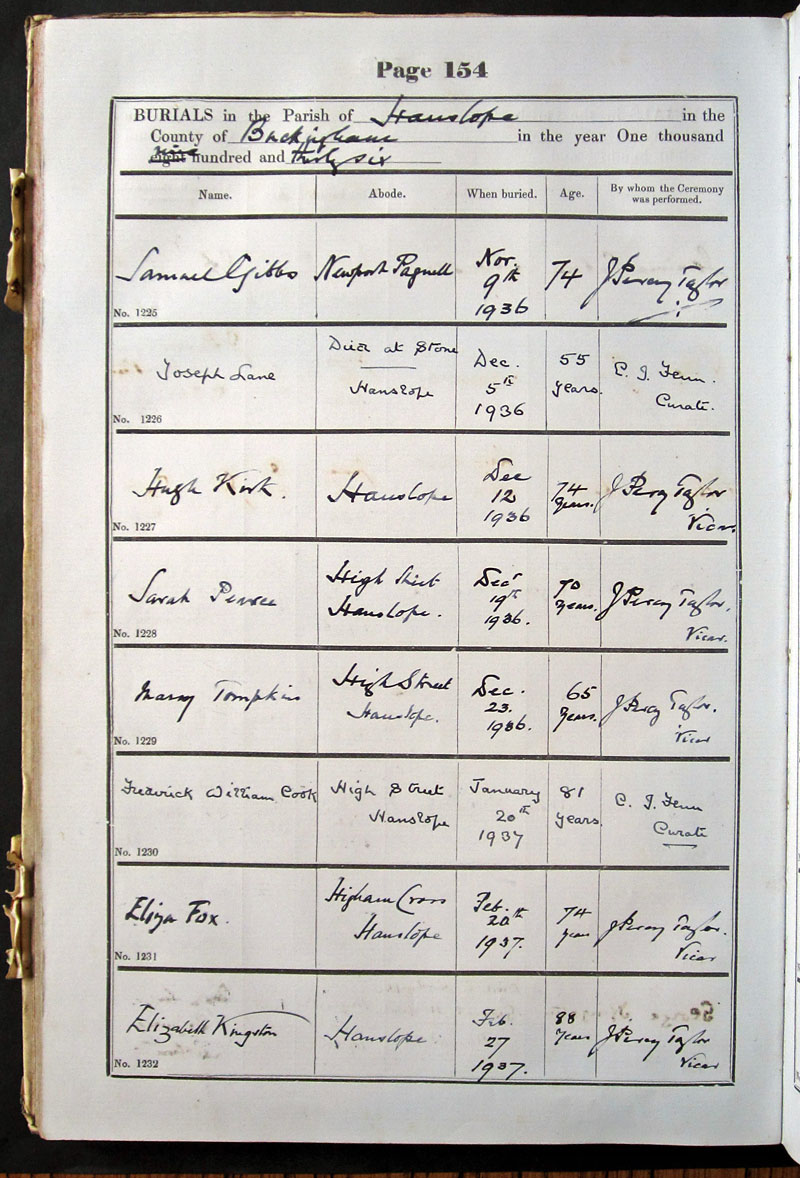 Page 154
BURIALS in the Parish of Hanslope in the
County of Buckingham in the year One thousand
nine
eight hundred and thirty six
Name. Abode. When buried. Age. By whom the Ceremony
was performed.
Samuel Gibbs
No. 1225
Newport Pagnell
Nov.
9th
1936
74
J Percy Taylor
Joseph Lane
No. 1226
Died at Stone
Hanslope
Dec.
5th
1936
55
years.
C. J. Fenn.
Curate.
Hugh Kirk.
No. 1227
Hanslope
Dec
12
1936
74
years.
J Percy Taylor
Vicar.
Sarah Pearce
No. 1228
High Street
Hanslope.
Decr
19th
1936.
70
years.
J Percy Taylor.
Vicar.
Tompkins
No. 1229
High Street
Hanslope.
Dec.
23.
1936.
65
years.
J Percy Taylor.
Vicar
Frederick William Cook
No. 1230
High Street
Hanslope
January
20th
1937
81
years.
C. J. Fenn
Curate
Eliza Fox.
No. 1231
Higham Cross
Hanslope
Feb.
20th
1937.
74
years
J Percy Taylor.
Vicar
Elizabeth Kingston
No. 1232
Hanslope
Feb.
27
1937.
88
years
J Percy Taylor
Vicar